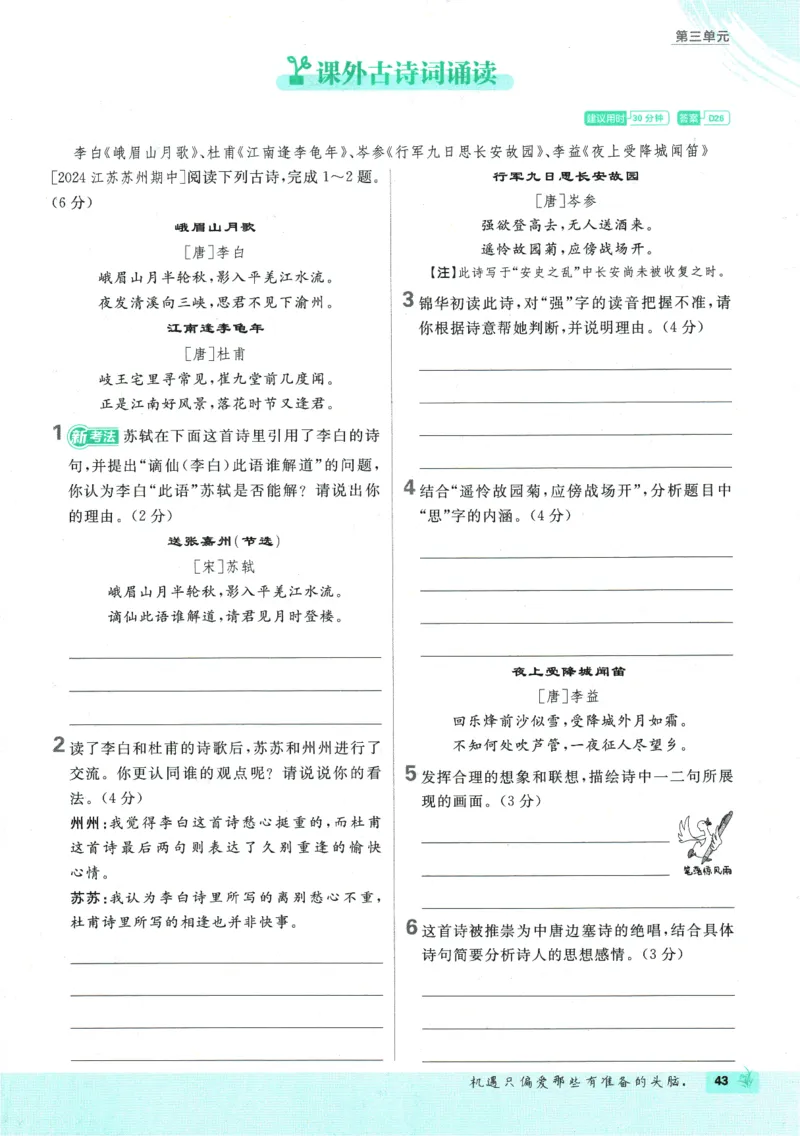 第三单元
课外古诗词诵读
建议用时 30分钟 答案 D26
李白《峨眉山月歌》、杜甫《江南逢李龟年》、岑参《行军九日思长安故园》、李益《夜上受降城闻笛》
[2024江苏苏州期中]阅读下列古诗,完成1～2题。
(6分)
峨眉山月歌
[唐]李白
峨眉山月半轮秋,影入平羌江水流。
夜发清溪向三峡,思君不见下渝州。
江南逢李龟年
[唐]杜甫
岐王宅里寻常见,崔九堂前几度闻。
正是江南好风景,落花时节又逢君。
1 新考法 苏轼在下面这首诗里引用了李白的诗
句,并提出“谪仙(李白)此语谁解道”的问题,
你认为李白“此语”苏轼是否能解?请说出你
的理由。(2分)
送张嘉州(节选)
[宋]苏轼
峨眉山月半轮秋,影入平羌江水流。
谪仙此语谁解道,请君见月时登楼。
2 读了李白和杜甫的诗歌后,苏苏和州州进行了
交流。你更认同谁的观点呢?请说说你的看
法。(4分)
州州:我觉得李白这首诗愁心挺重的,而杜甫
这首诗最后两句则表达了久别重逢的愉快
心情。
苏苏:我认为李白诗里所写的离别愁心不重,
杜甫诗里所写的相逢也并非快事。
行军九日思长安故园
[唐]岑参
强欲登高去,无人送酒来。
遥怜故园菊,应傍战场开。
【注】此诗写于“安史之乱”中长安尚未被收复之时。
3 锦华初读此诗,对“强”字的读音把握不准,请
你根据诗意帮她判断,并说明理由。(4分)
4 结合“遥怜故园菊,应傍战场开”,分析题目中
“思”字的内涵。(4分)
夜上受降城闻笛
[唐]李益
回乐烽前沙似雪,受降城外月如霜。
不知何处吹芦管,一夜征人尽望乡。
5 发挥合理的想象和联想,描绘诗中一二句所展
现的画面。(3分)
笔落惊风雨
6 这首诗被推崇为中唐边塞诗的绝唱,结合具体
诗句简要分析诗人的思想感情。(3分)
机遇只偏爱那些有准备的头脑. 43